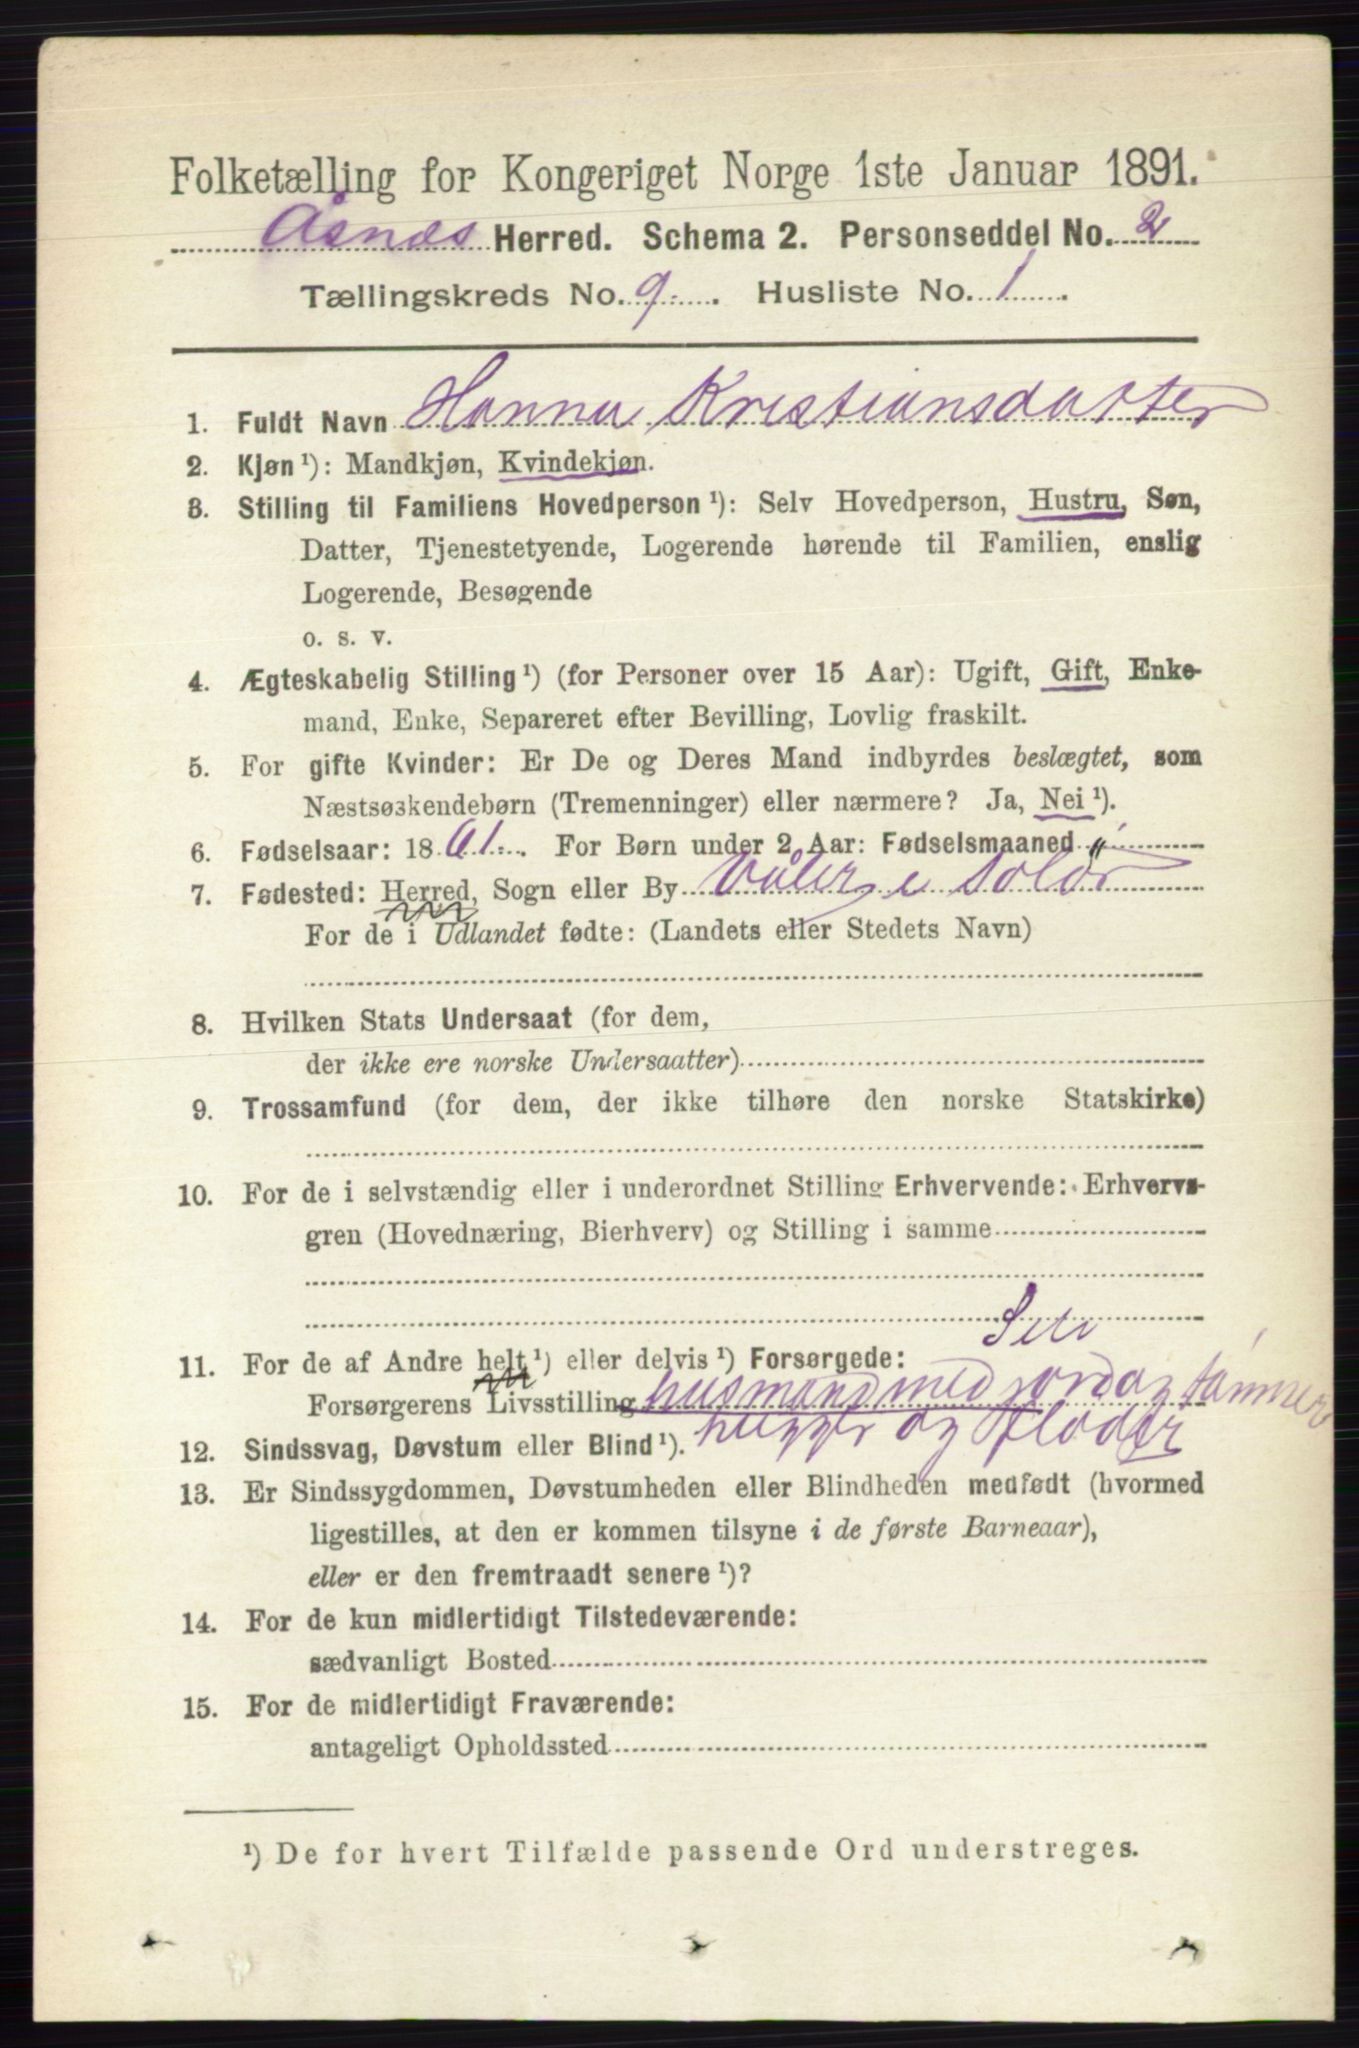 Folketælling for Kongeriget Norge 1ste Januar 1891.
Åsnæs Herred. Schema 2. Personseddel No. 2
Tællingskreds No. 9. Husliste No. 1.
1. Fuldt Navn Hanna Kristiansdatter
2. Kjøn ¹): Mandkjøn, Kvindekjøn.
3. Stilling til Familiens Hovedperson ¹): Selv Hovedperson, Hustru, Søn,
Datter, Tjenestetyende, Logerende hørende til Familien, enslig
Logerende, Besøgende
o. s. v.
4. Ægteskabelig Stilling ¹) (for Personer over 15 Aar): Ugift, Gift, Enke-
mand, Enke, Separeret efter Bevilling, Lovlig fraskilt.
5. For gifte Kvinder: Er De og Deres Mand indbyrdes beslægtet, som
Næstsøskendebørn (Tremenninger) eller nærmere? Ja, Nei ¹).
6. Fødselsaar: 1861. For Børn under 2 Aar: Fødselsmaaned "
7. Fødested: Herred, Sogn eller By Våler i Solør
For de i Udlandet fødte: (Landets eller Stedets Navn)
8. Hvilken Stats Undersaat (for dem,
der ikke ere norske Undersaatter)
9. Trossamfund (for dem, der ikke tilhøre den norske Statskirke)
10. For de i selvstændig eller i underordnet Stilling Erhvervende: Erhvervs-
gren (Hovednæring, Bierhverv) og Stilling i samme
11. For de af Andre helt ¹) eller delvis ¹) Forsørgede:
Forsørgerens Livsstilling husmand med jord og tømmer
hugger og fløder
12. Sindssvag, Døvstum eller Blind ¹).
13. Er Sindssygdommen, Døvstumheden eller Blindheden medfødt (hvormed
ligestilles, at den er kommen tilsyne i de første Barneaar),
eller er den fremtraadt senere ¹)?
14. For de kun midlertidigt Tilstedeværende:
sædvanligt Bosted
15. For de midlertidigt Fraværende:
antageligt Opholdssted
¹) De for hvert Tilfælde passende Ord understreges.